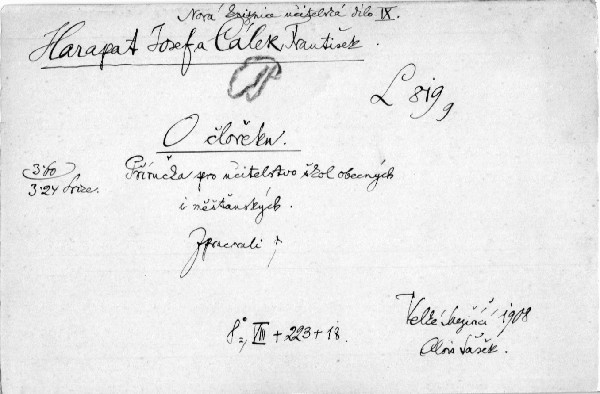 Nová knihovna učitelská dílo IX.
Harapat Josef a Čálek František.
L 819 9
O člověku.
3·60
3·24 brož.
Příručka pro učitelstvo škol obecných
i měšťanských.
Zpracovali
8°, VIII + 223 + 18.
Velké Meziříčí 1908
Alois Šašek.